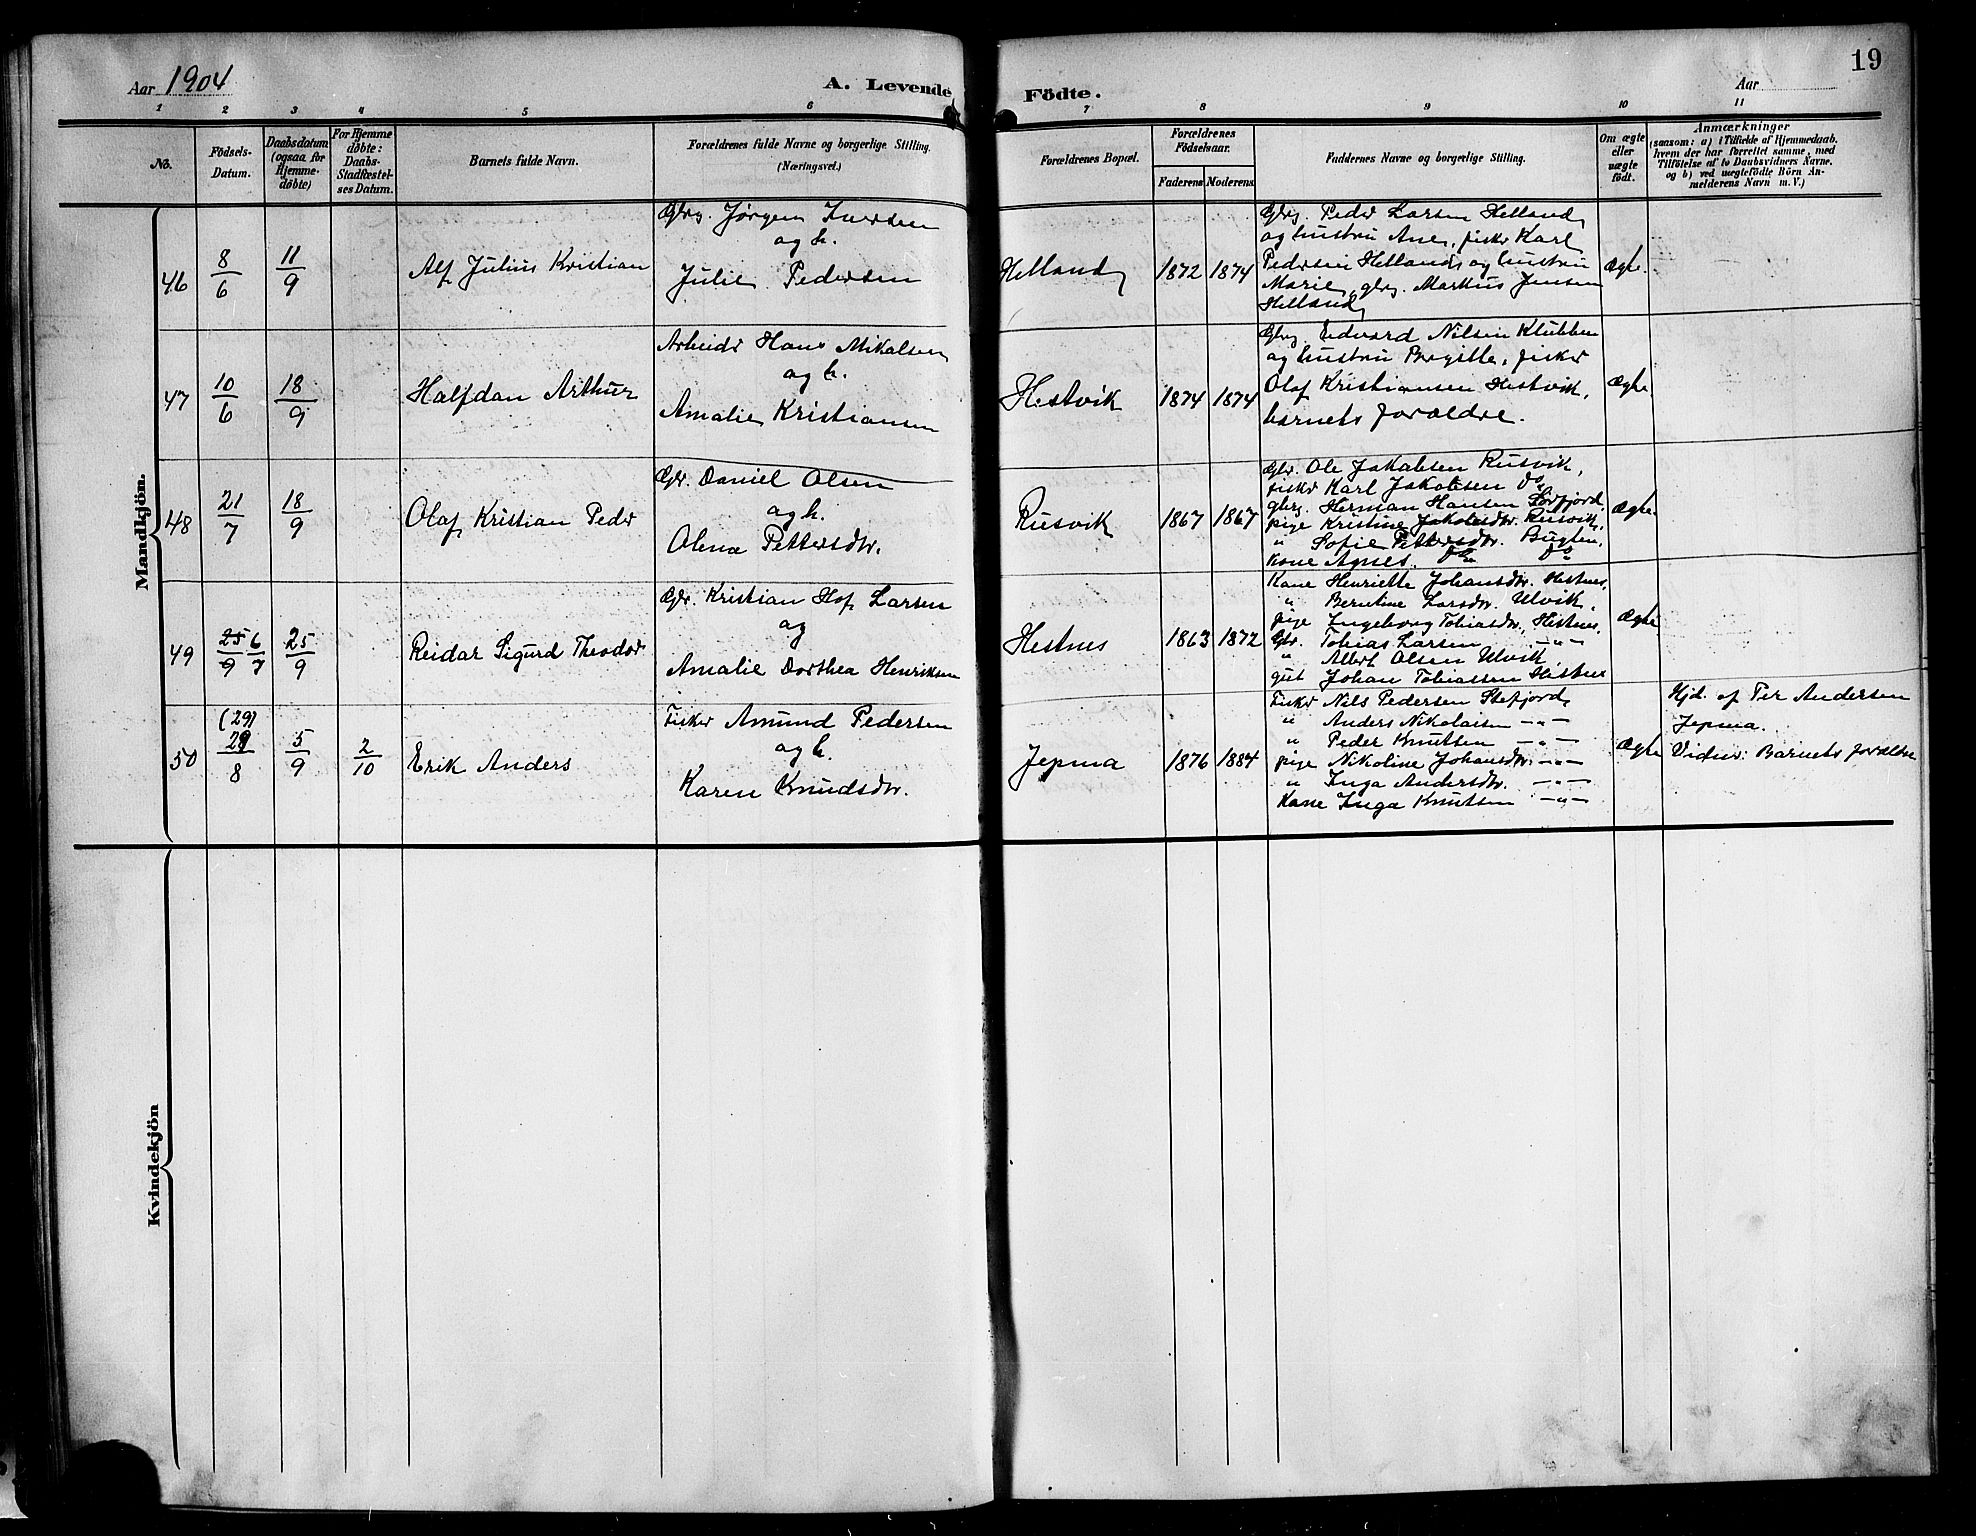 19
Aar 1904
A. Levende
Födte.
Aar
1 2 3 4 5 6 7 8 9 10 11
No.
Födsels-
Datum.
Daabsdatum
(ogsaa for
Hjemme-
döbte)
For Hjemme
döbte:
Daabs-
Stadfæstel-
ses Datum.
Barnets fulde Navn.
Forældrenes fulde Navne og borgerlige Stilling.
(Næringsvei.)
Forældrenes Bopæl.
Forældrenes
Födselsaar.
Faderens Moderens
Faddernes Navne og borgerlige Stilling.
Om ægte
eller
uægte
født.
Anmærkninger
(saasom: a) i Tilfælde af Hjemmedaab.
hvem der har forrettet samme, med
Tilföielse af to Daabsvidners Navne.
og b) ved uægtefödte Börn An-
melderens Navn m. V.)
Mandkjön.
46
8/6
11/9
Alf Julius Kristian
Gbrg. Jørgen Iversen
og h.
Julie Pedersen
Helland
1872 1874
Gbrg. Peder Larsen Helland
og hustru Ane, fisker Karl
Pedersen Helland og hustru
Marie, gbrg. Markus Jensen
Helland
Ægte.
47
10/6
18/9
Halfdan Arthur
Arbeider Hans Mikalsen
og h.
Amalie Kristiansen
Hestvik
1874 1874
Gbrg. Edvard Nilsen Klubben
og hustru Bergitte, fisker
Olaf Kristiansen Hestvik,
barnets forældre.
Ægte.
48
21/7
18/9
Olaf Kristian Peder
Gbr. Daniel Olsen
og h.
Olena Pettersdtr.
Rusvik
1867 1867
Gbr. Ole Jakobsen Rusvik,
fisker Karl Jakobsen do
gbrg. Herman Hansen Sørfjord.
pige Kristine Jakobsdtr. Rusvik,
" Sofie Pettersdtr. Bugten.
Kone Agnes. do do
Ægte.
49
25/9 6/7
25/9
Reidar Sigurd Theodor
Gbr. Kristian Hof Larsen
og
Amalie Dorthea Henriksen
Hestnes
1863 1872
Kone Henriette Johansdtr. Hestnes,
" Berntine Larsdtr. Ulvik.
pige Ingeborg Tobiasdtr. Hestnes.
Gbr. Tobias Larsen —"—
" Albert Olsen Ulvik
gut Johan Tobiassen Hestnes
Ægte
50
(29)
29/8
5/9
2/10
Erik Anders
Fisker Amund Pedersen
og h.
Karen Knudsdtr.
Jepma
1876 1884
Fisker Nils Pedersen Stefjord
" Anders Nikolaisen —"—
" Peder Knutsen —"—
pige Nikoline Johansdtr. —"—
" Inga Andersdtr. —"—
Kone Inga Knutsen —"—
Ægte
Hjd. af Per Andersen
Jepma.
Vidner: Barnets forældre
Kvindekjön